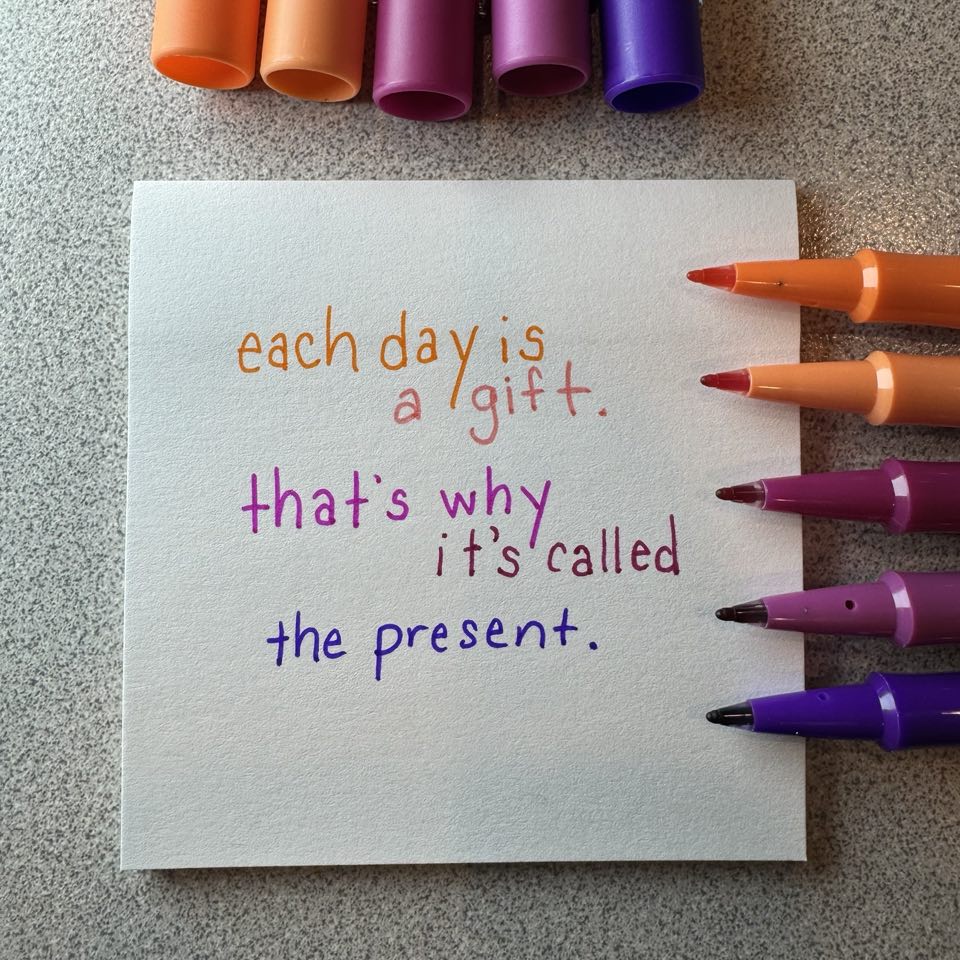 each day is
a gift.
that's why
it's called
the present.